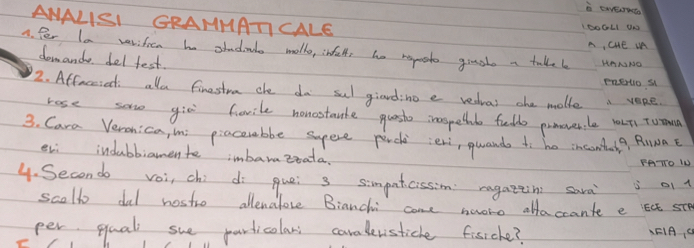 ANALISI GRAMMATICALE
1. Per la verifica ho studiato molto, infatti ho risposto giusto a tutte le
domande del test.
2. Affacciati alla finestra che dà sul giardino e vedrai che molte
rose sono già fiorite nonostante questo inaspettato freddo primaverile
3. Cara Veronica, mi piacerebbe sapere perché ieri, quando ti ho incontrata,
eri indubbiamente imbarazzata.
4. Secondo voi, chi di quei 3 simpaticissimi ragazzini sarà
scelto dal nostro allenatore Bianchi come nuovo attaccante e
per quali sue particolari caratteristiche fisiche?
, CHE HA
HANNO
PREMIO SI
VERE
E
FATTO IN